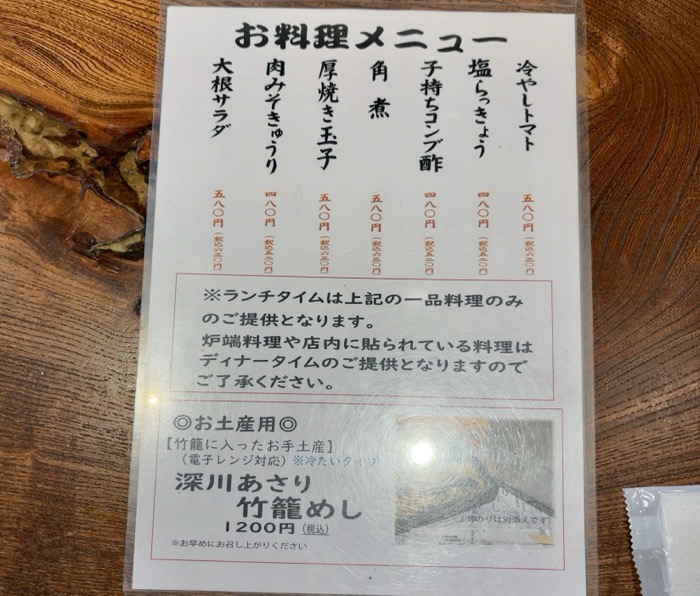 お料理メニュー
冷やしトマト 五八〇円
塩らっきょう 四八〇円
子持ちコンブ酢 四八〇円
角煮 五八〇円
厚焼き玉子 五八〇円
肉みそきゅうり 四八〇円
大根サラダ 五八〇円
※ランチタイムは上記の一品料理のみ
のご提供となります。
炉端料理や店内に貼られている料理は
ディナータイムのご提供となりますので
ご了承ください。
◎お土産用◎
【竹籠に入ったお手土産】
（電子レンジ対応）※冷たいタイプ
深川あさり
竹籠めし
1200円（税込）
※お早めにお召し上がりください
のりは別添えです